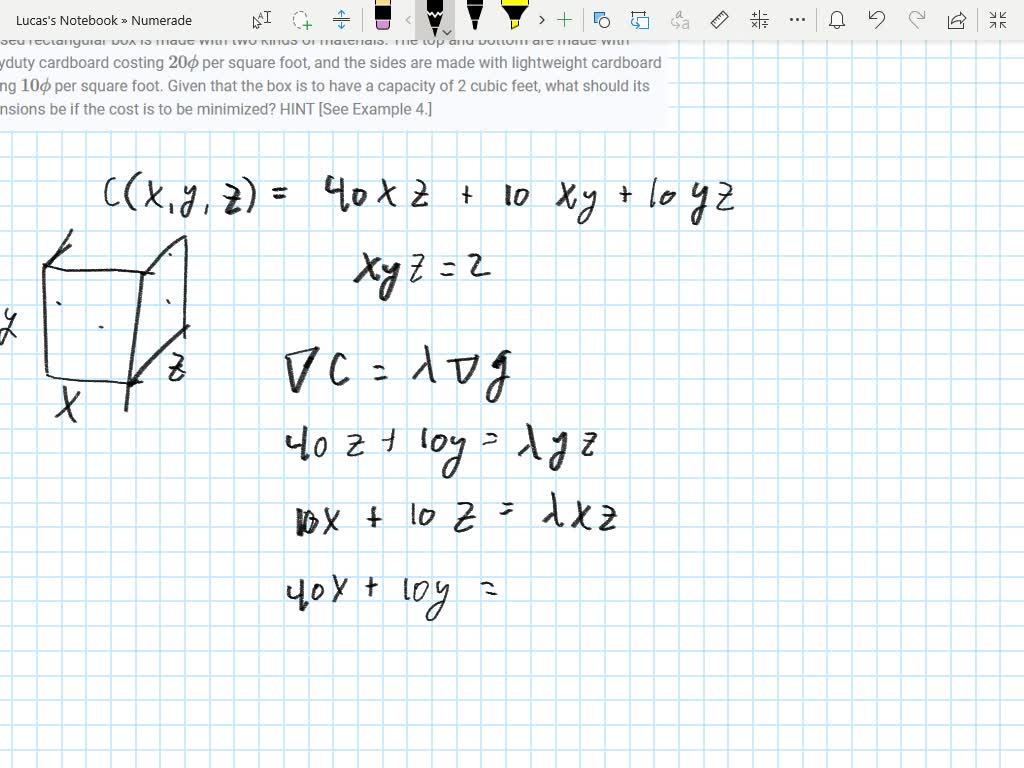 Lucas's Notebook » Numerade
sed rectangular box is made with two kinds of materials. The top and bottom are made with
yduty cardboard costing 20ϕ per square foot, and the sides are made with lightweight cardboard
ng 10ϕ per square foot. Given that the box is to have a capacity of 2 cubic feet, what should its
nsions be if the cost is to be minimized? HINT [See Example 4.]
C(x,y,z) = 40xz + 10xy + 10yz
xyz = 2
y
z
x
∇C = λ∇g
40z + 10y = λyz
10x + 10z = λxz
40x + 10y =